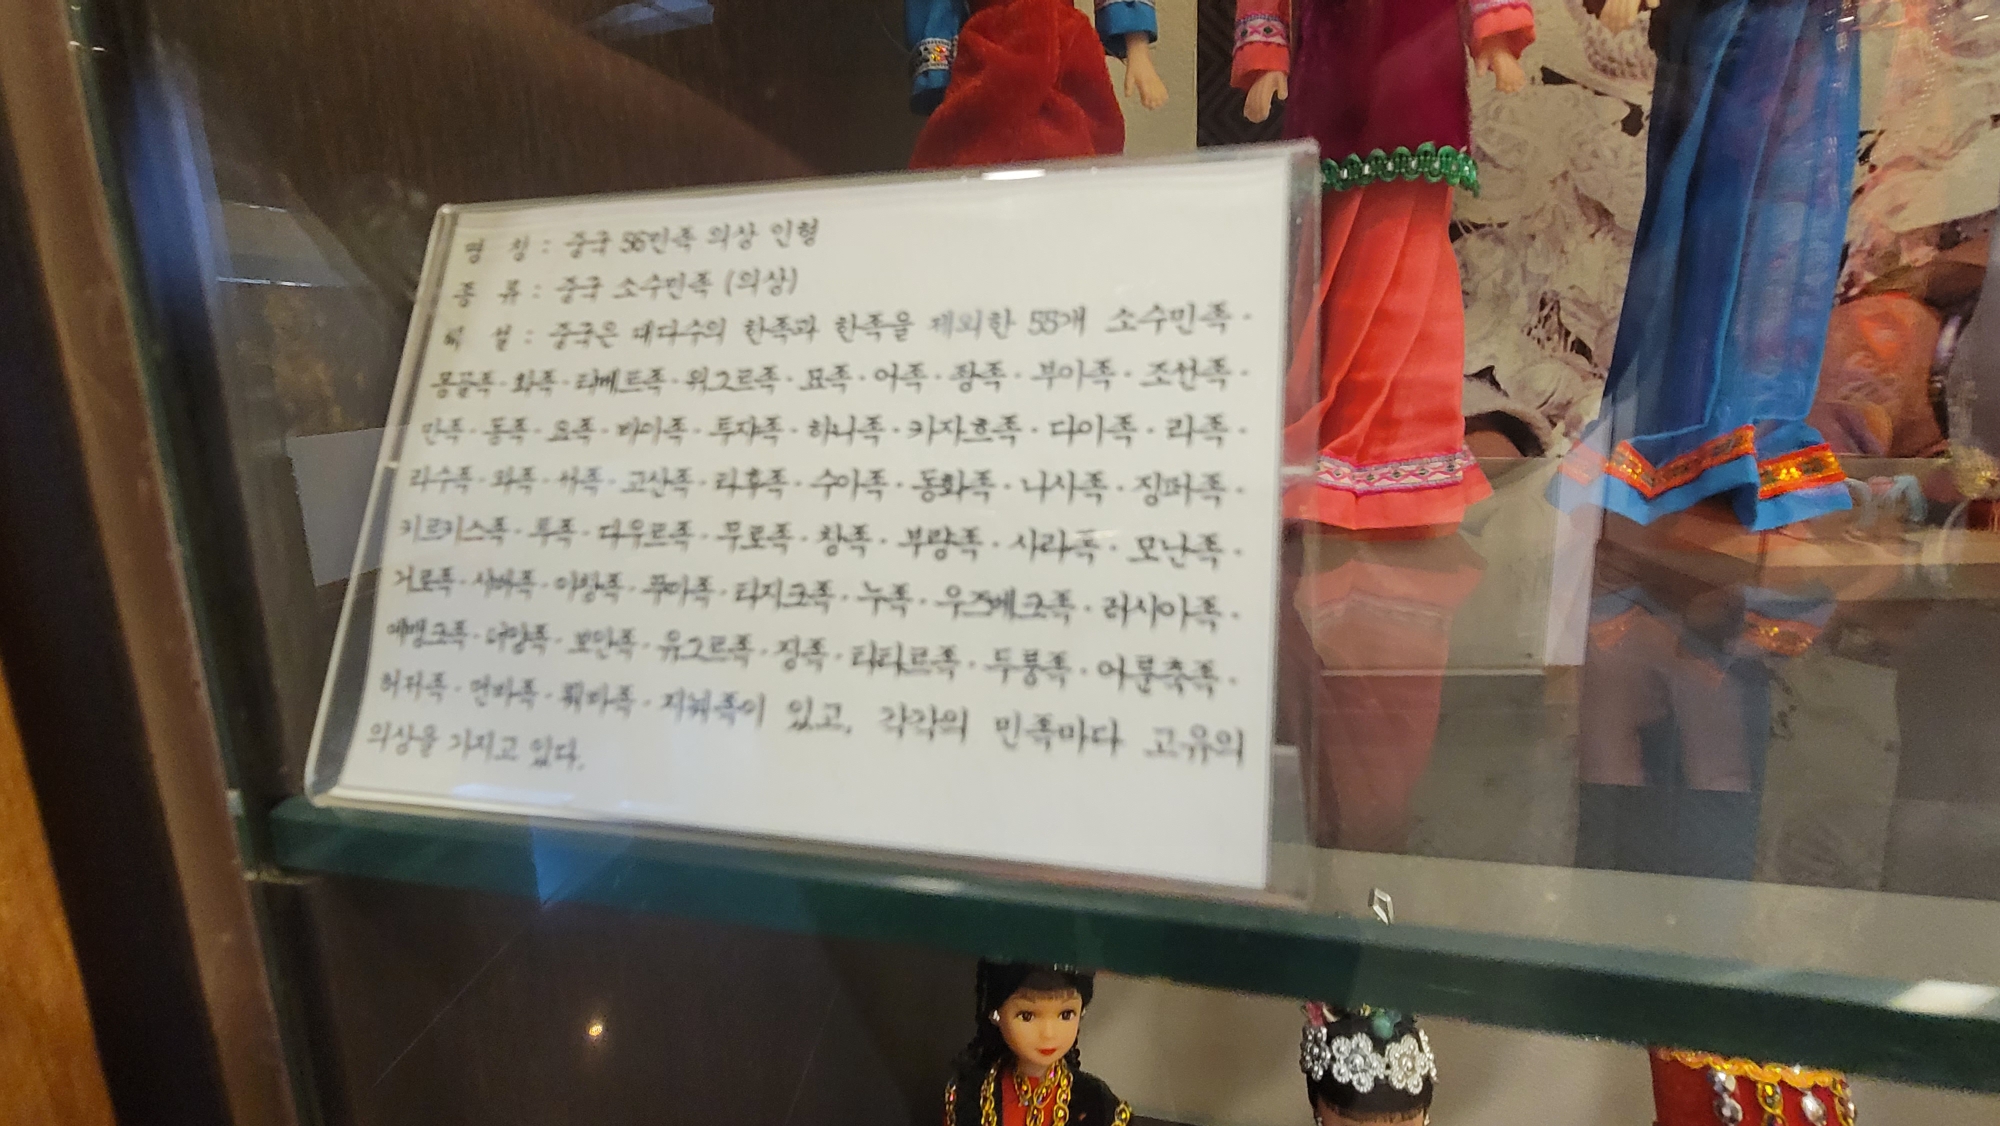 명 칭 : 중국 56민족 의상 인형
종 류 : 중국 소수민족 (의상)
해 설 : 중국은 대다수의 한족과 한족을 제외한 55개 소수민족·
몽골족·회족·티베트족·위그르족·묘족·이족·장족·부이족·조선족·
만족·동족·요족·바이족·투쟈족·하니족·카자흐족·다이족·리족·
리수족·와족·서족·고산족·라후족·수이족·동화족·나시족·징퍼족·
키르키스족·투족·다우르족·무로족·창족·부랑족·사라족·모난족·
거로족·시버족·아창족·푸미족·타지크족·누족·우즈베크족·러시아족·
예벵크족·더앙족·보안족·유그르족·징족·타타르족·두룽족·어룬춘족·
허저족·먼바족·뤄바족·지눠족이 있고, 각각의 민족마다 고유의
의상을 가지고 있다.